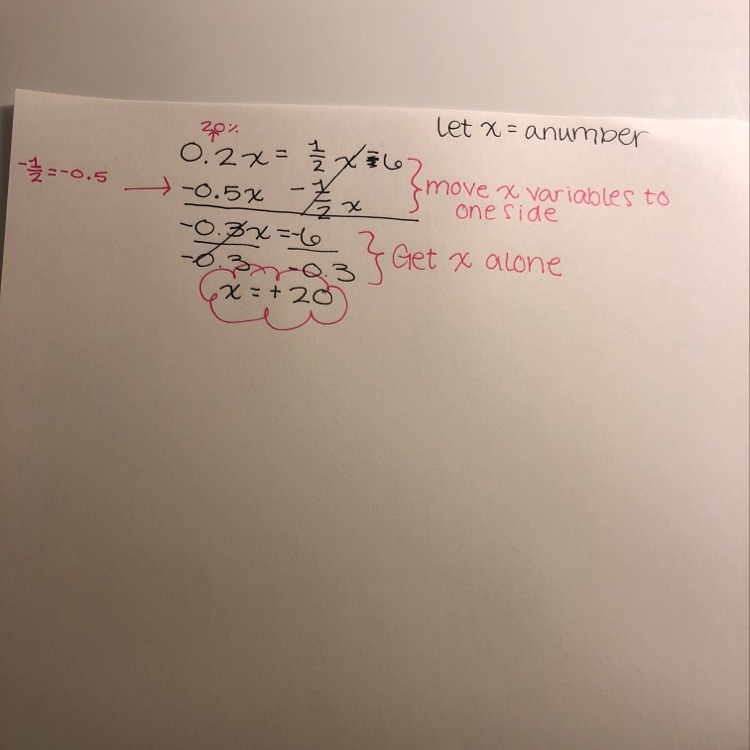 let x = a number
20%
0.2x = 1/2 x - 6
-1/2 = -0.5 → -0.5x - 1/2 x
} move x variables to
one side
-0.3x = -6
-0.3 -0.3 } Get x alone
x = + 20